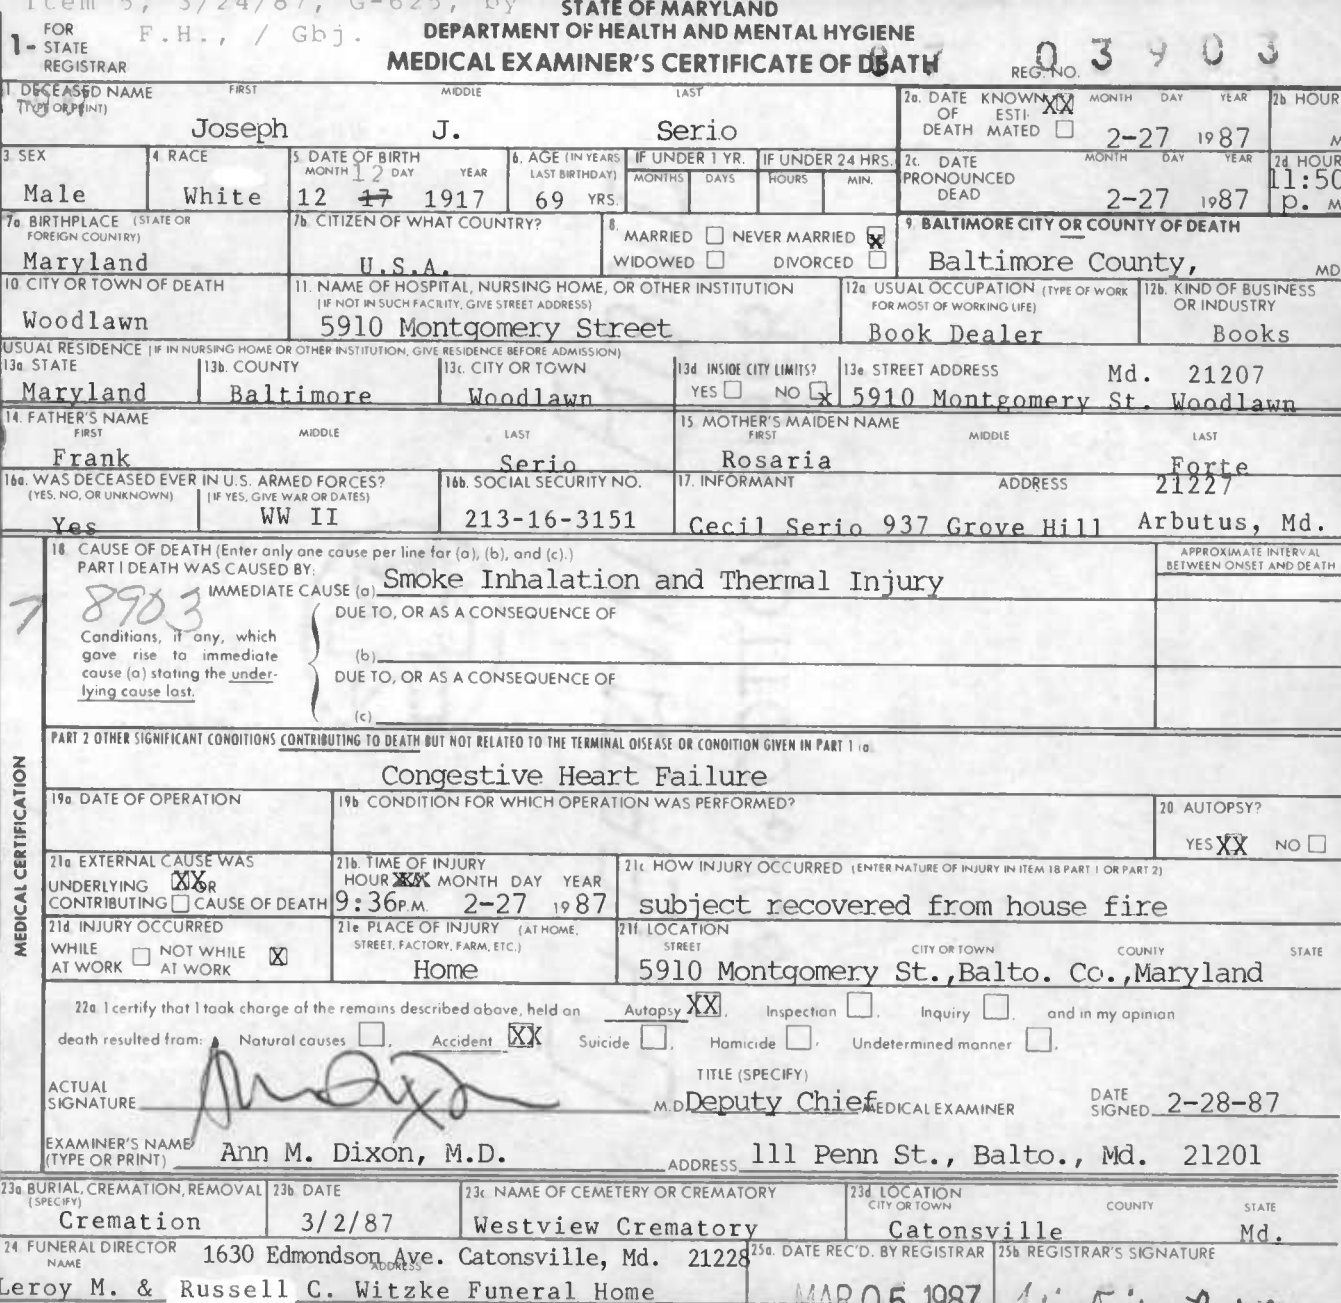 Item 5, 3/24/87, G-625, by
F.H., / Gbj.
STATE OF MARYLAND
DEPARTMENT OF HEALTH AND MENTAL HYGIENE
MEDICAL EXAMINER'S CERTIFICATE OF DEATH
1- FOR STATE REGISTRAR
REG. NO. 03903
1. DECEASED NAME (TYPE OR PRINT) FIRST MIDDLE LAST
Joseph J. Serio
2a. DATE OF DEATH KNOWN XX ESTIMATED MONTH DAY YEAR
2-27 1987
2b HOUR M
3. SEX
Male
4. RACE
White
5. DATE OF BIRTH MONTH DAY YEAR
12 12 17 1917
6. AGE (IN YEARS LAST BIRTHDAY)
69 YRS.
IF UNDER 1 YR. MONTHS DAYS
IF UNDER 24 HRS. HOURS MIN.
2c. DATE PRONOUNCED DEAD MONTH DAY YEAR
2-27 1987
2d HOUR
11:50 p. M
7a BIRTHPLACE (STATE OR FOREIGN COUNTRY)
Maryland
7b. CITIZEN OF WHAT COUNTRY?
U.S.A.
8. MARRIED NEVER MARRIED X
WIDOWED DIVORCED
9. BALTIMORE CITY OR COUNTY OF DEATH
Baltimore County, MD
10. CITY OR TOWN OF DEATH
Woodlawn
11. NAME OF HOSPITAL, NURSING HOME, OR OTHER INSTITUTION
(IF NOT IN SUCH FACILITY, GIVE STREET ADDRESS)
5910 Montgomery Street
12a USUAL OCCUPATION (TYPE OF WORK FOR MOST OF WORKING LIFE)
Book Dealer
12b. KIND OF BUSINESS OR INDUSTRY
Books
USUAL RESIDENCE (IF IN NURSING HOME OR OTHER INSTITUTION, GIVE RESIDENCE BEFORE ADMISSION)
13a STATE
Maryland
13b. COUNTY
Baltimore
13c. CITY OR TOWN
Woodlawn
13d INSIDE CITY LIMITS?
YES NO X
13e STREET ADDRESS Md. 21207
5910 Montgomery St. Woodlawn
14. FATHER'S NAME FIRST MIDDLE LAST
Frank Serio
15. MOTHER'S MAIDEN NAME FIRST MIDDLE LAST
Rosaria Forte
16a. WAS DECEASED EVER IN U.S. ARMED FORCES?
(YES, NO, OR UNKNOWN) (IF YES, GIVE WAR OR DATES)
Yes WW II
16b. SOCIAL SECURITY NO.
213-16-3151
17. INFORMANT ADDRESS 21227
Cecil Serio 937 Grove Hill Arbutus, Md.
18. CAUSE OF DEATH (Enter only one cause per line for (a), (b), and (c).)
PART I DEATH WAS CAUSED BY:
IMMEDIATE CAUSE (a) Smoke Inhalation and Thermal Injury
APPROXIMATE INTERVAL BETWEEN ONSET AND DEATH
8903
7
DUE TO, OR AS A CONSEQUENCE OF
Conditions, if any, which
gave rise to immediate
cause (a) stating the under-
lying cause last.
(b)
DUE TO, OR AS A CONSEQUENCE OF
(c)
PART 2 OTHER SIGNIFICANT CONDITIONS CONTRIBUTING TO DEATH BUT NOT RELATED TO THE TERMINAL DISEASE OR CONDITION GIVEN IN PART 1 (a
Congestive Heart Failure
MEDICAL CERTIFICATION
19a. DATE OF OPERATION
19b CONDITION FOR WHICH OPERATION WAS PERFORMED?
20. AUTOPSY?
YES XX NO
21a EXTERNAL CAUSE WAS
UNDERLYING XX OR
CONTRIBUTING CAUSE OF DEATH
21b. TIME OF INJURY
HOUR XXX MONTH DAY YEAR
9:36 P.M. 2-27 1987
21c HOW INJURY OCCURRED (ENTER NATURE OF INJURY IN ITEM 18 PART 1 OR PART 2)
subject recovered from house fire
21d INJURY OCCURRED
WHILE AT WORK NOT WHILE AT WORK X
21e PLACE OF INJURY (AT HOME, STREET, FACTORY, FARM, ETC.)
Home
21f LOCATION
STREET CITY OR TOWN COUNTY STATE
5910 Montgomery St.,Balto. Co.,Maryland
22a I certify that I took charge of the remains described above, held an Autopsy XX, Inspection , Inquiry , and in my opinion
death resulted from: Natural causes , Accident XX Suicide , Homicide , Undetermined manner .
ACTUAL SIGNATURE
TITLE (SPECIFY)
M.D. Deputy Chief MEDICAL EXAMINER
DATE SIGNED 2-28-87
EXAMINER'S NAME (TYPE OR PRINT) Ann M. Dixon, M.D.
ADDRESS 111 Penn St., Balto., Md. 21201
23a BURIAL, CREMATION, REMOVAL (SPECIFY)
Cremation
23b DATE
3/2/87
23c NAME OF CEMETERY OR CREMATORY
Westview Crematory
23d LOCATION CITY OR TOWN COUNTY STATE
Catonsville Md.
24 FUNERAL DIRECTOR NAME ADDRESS
1630 Edmondson Ave. Catonsville, Md. 21228
Leroy M. & Russell C. Witzke Funeral Home
25a. DATE REC'D. BY REGISTRAR
MAR 05 1987
25b REGISTRAR'S SIGNATURE